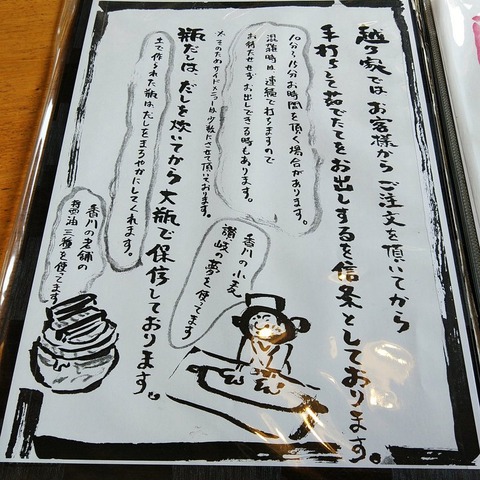 越乃家ではお客様からご注文を頂いてから
手打ちして茹でたてをお出しするを信条としております。
10分〜15分お時間を頂く場合があります。
混雑時は連続で打ちますので
お待たせせずお出しできる時もあります。
そのためサイドメニューは少数とさせて頂いております。
瓶だしは、だしを炊いてから大瓶で保管しております。
土で作られた瓶はだしをまろやかにしてくれます。
香川の小麦
讃岐の夢を使ってます
香川の老舗の
醤油三種を使ってます